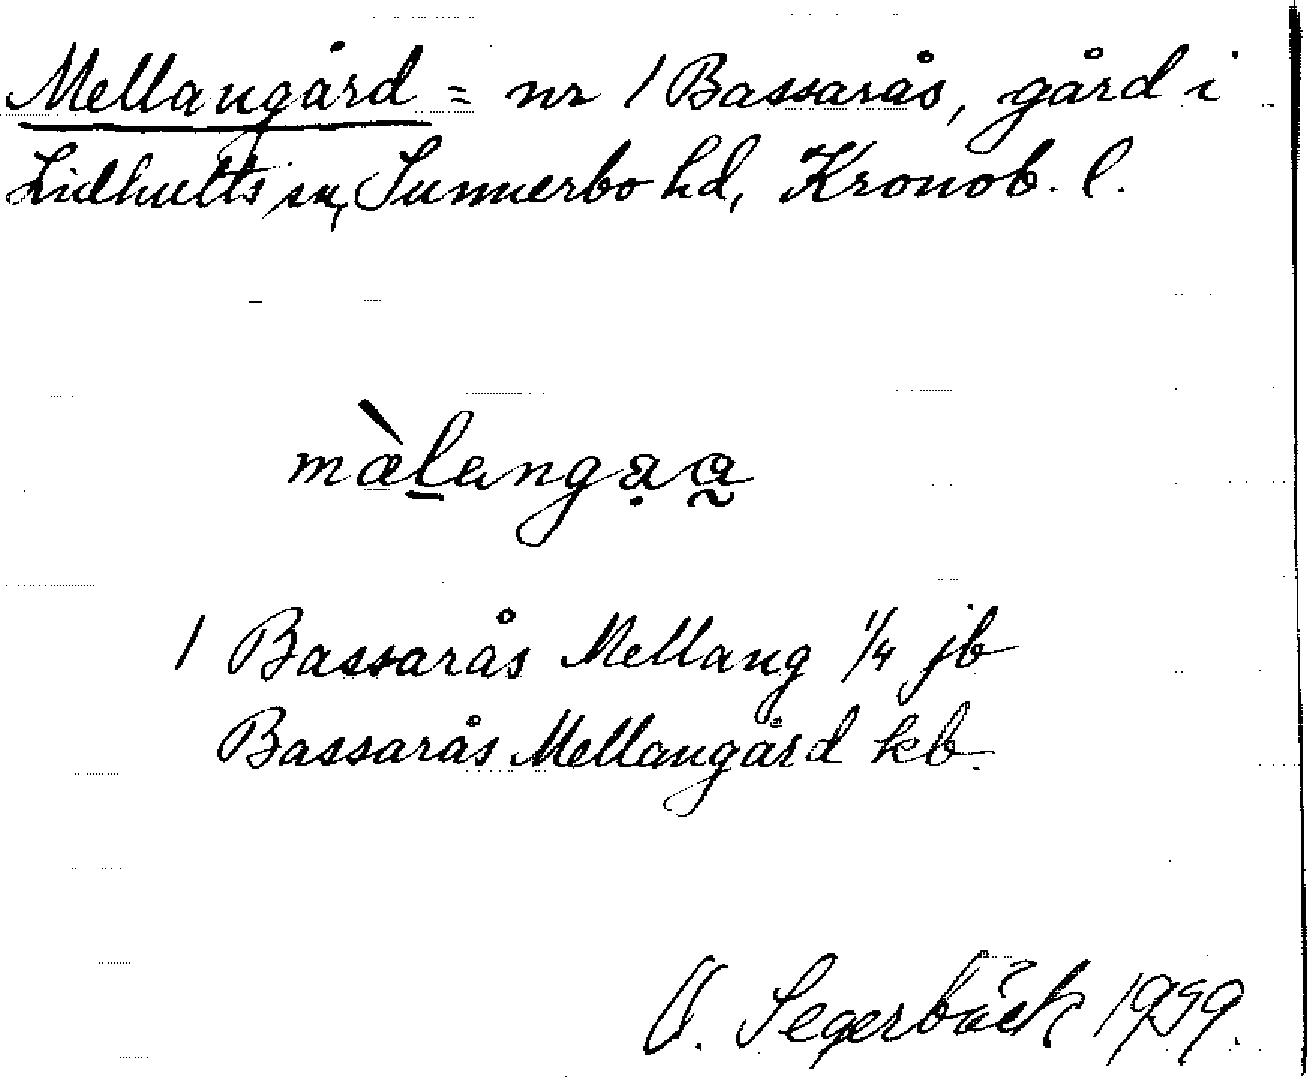 Mellangård = nr 1 Bassarås, gård i
Lidhults sn, Sunnerbo hd, Kronob. l.
mæ̀l̠angạa̰
1 Bassarås Mellang 1/4 jb
Bassarås Mellangård kb.
Segerbäck 1929.